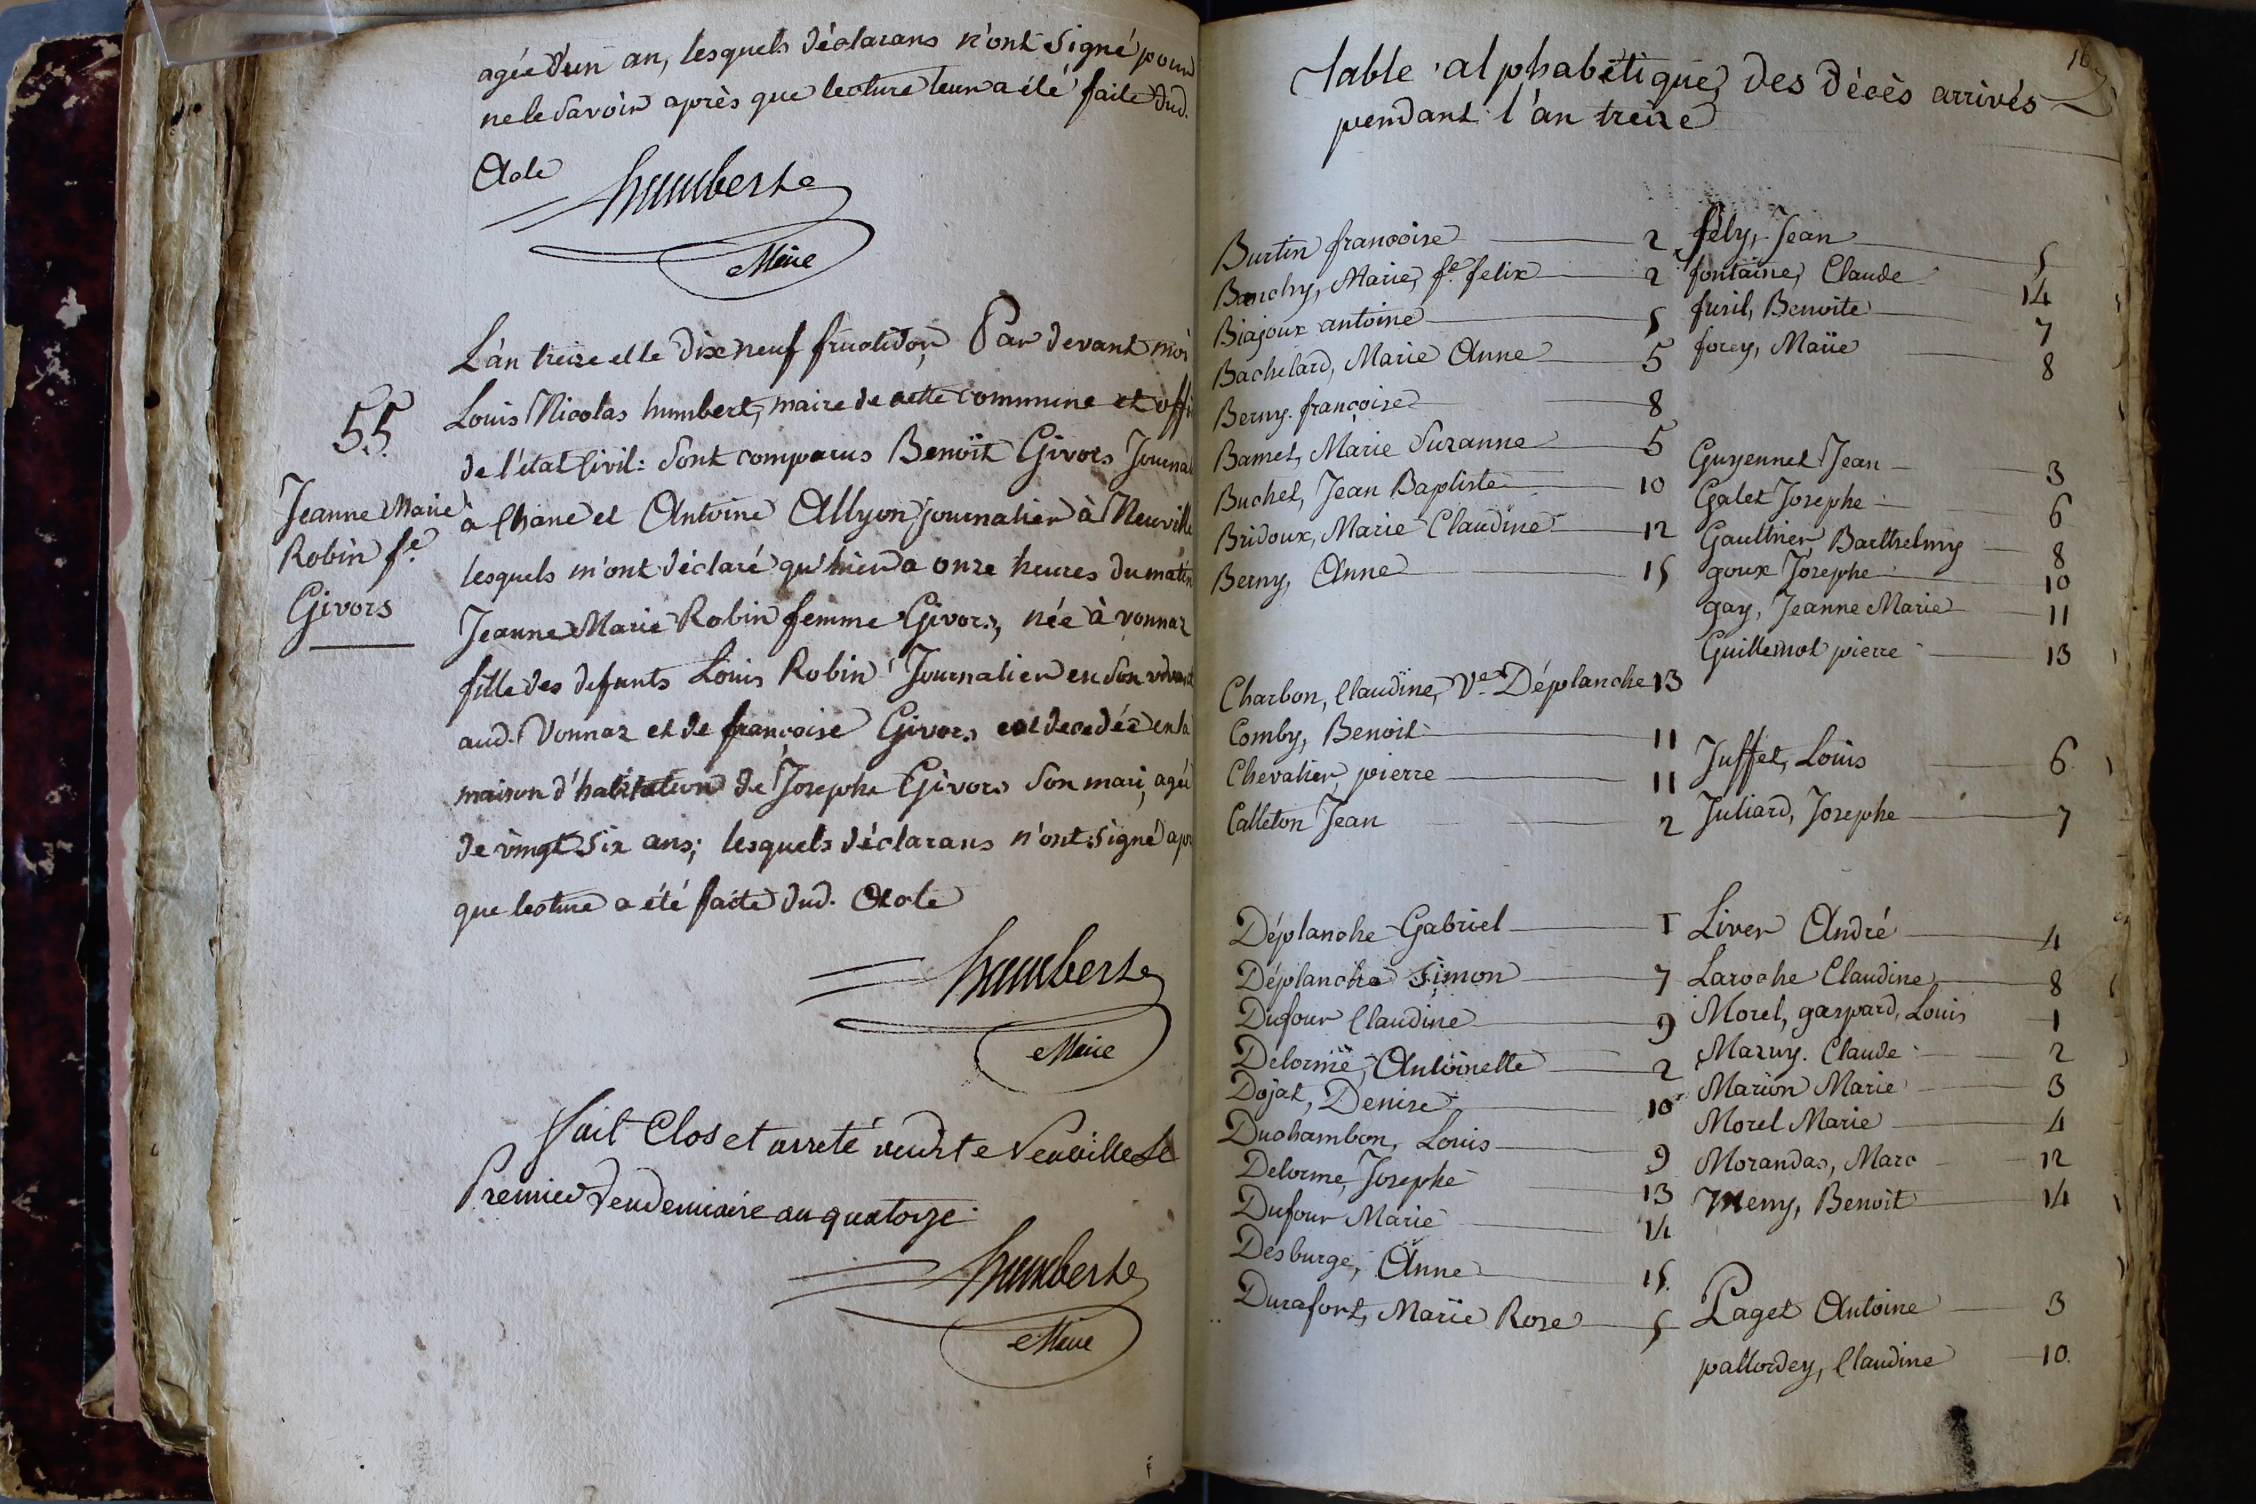 agée d'un an, lesquels déclarans n'ont signé pour
ne le savoir après que lecture leur a été faite dud.
Acte
humbert
Maire
L'an treize et le dix neuf fructidor, Par devant moi
55.
Louis Nicolas humbert, maire de cette commune et offi
de l'état Civil: sont comparus Benoït Givors Journal
Jeanne Marie
Robin fe.
Givors
à Chane et Antoine Allyon journalier à Neuville
lesquels m'ont déclaré qu'hier a onze heures du matin
Jeanne Marie Robin femme Givors, née à Vonnaz
fille des defunts Louis Robin Journalier en son vivant
aud. Vonnaz et de françoise Givors est decedée en la
maison d'habitation de Josephe Givors son mari, agée
de vingt six ans; lesquels déclarans n'ont signé apr
que lecture a été faite dud. Acte
humbert
Maire
fait Clos et arreté Neuville le
Premier Vendemiaire an quatorze.
humbert
Maire
Table alphabétique des décès arrivés
pendant l'an treize
Burtin françoise 2
Banchy, Marie, fe. felix 2
Biajoux antoine 5
Bachelard, Marie Anne 5
Berny françoise 8
Bamet, Marie Suzanne 5
Buchet, Jean Baptiste 10
Bridoux, Marie Claudine 12
Berny, Anne 15
Charbon, Claudine, Ve. Déplanche 13
Comby, Benoit 11
Chevalier, pierre 11
Calleton Jean 2
Déplanche Gabriel 1
Déplanche Simon 7
Dufour Claudine 9
Delorme, Antoinette 2
Dojat, Denise 10
Duchambon, Louis 9
Delorme, Josephe 13
Dufour Marie 14
Desburge, Anne 15.
Durafort, Marie Rose 5
fély, Jean 5
fontaine, Claude 14
furil, Benoite 7
forey, Marie 8
Guyennet Jean 3
Galet Josephe 6
Gaulthier Barthelmy 8
goux Josephe 10
gay, Jeanne Marie 11
Guillemot pierre 13
Juffet, Louis 6
Juliard, Josephe 7
Liver André 4
Laroche Claudine 8
Morel, gaspard, Louis 1
Mazuy. Claude 2
Marion Marie 3
Morel Marie 4
Morandas, Marc 12
Meny, Benoit 14
Paget Antoine 3
pallordey, Claudine 10.